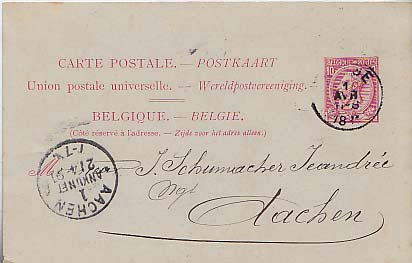 CARTE POSTALE. — POSTKAART
Union postale universelle. — Wereldpostvereeniging.
BELGIQUE. — BELGIE.
(Côté réservé à l'adresse. — Zijde voor het adres alleen.)
BELGIQUE
10
AVR
AACHEN
ANKUNFT
M J. Schumacher Jeandrée
Aachen